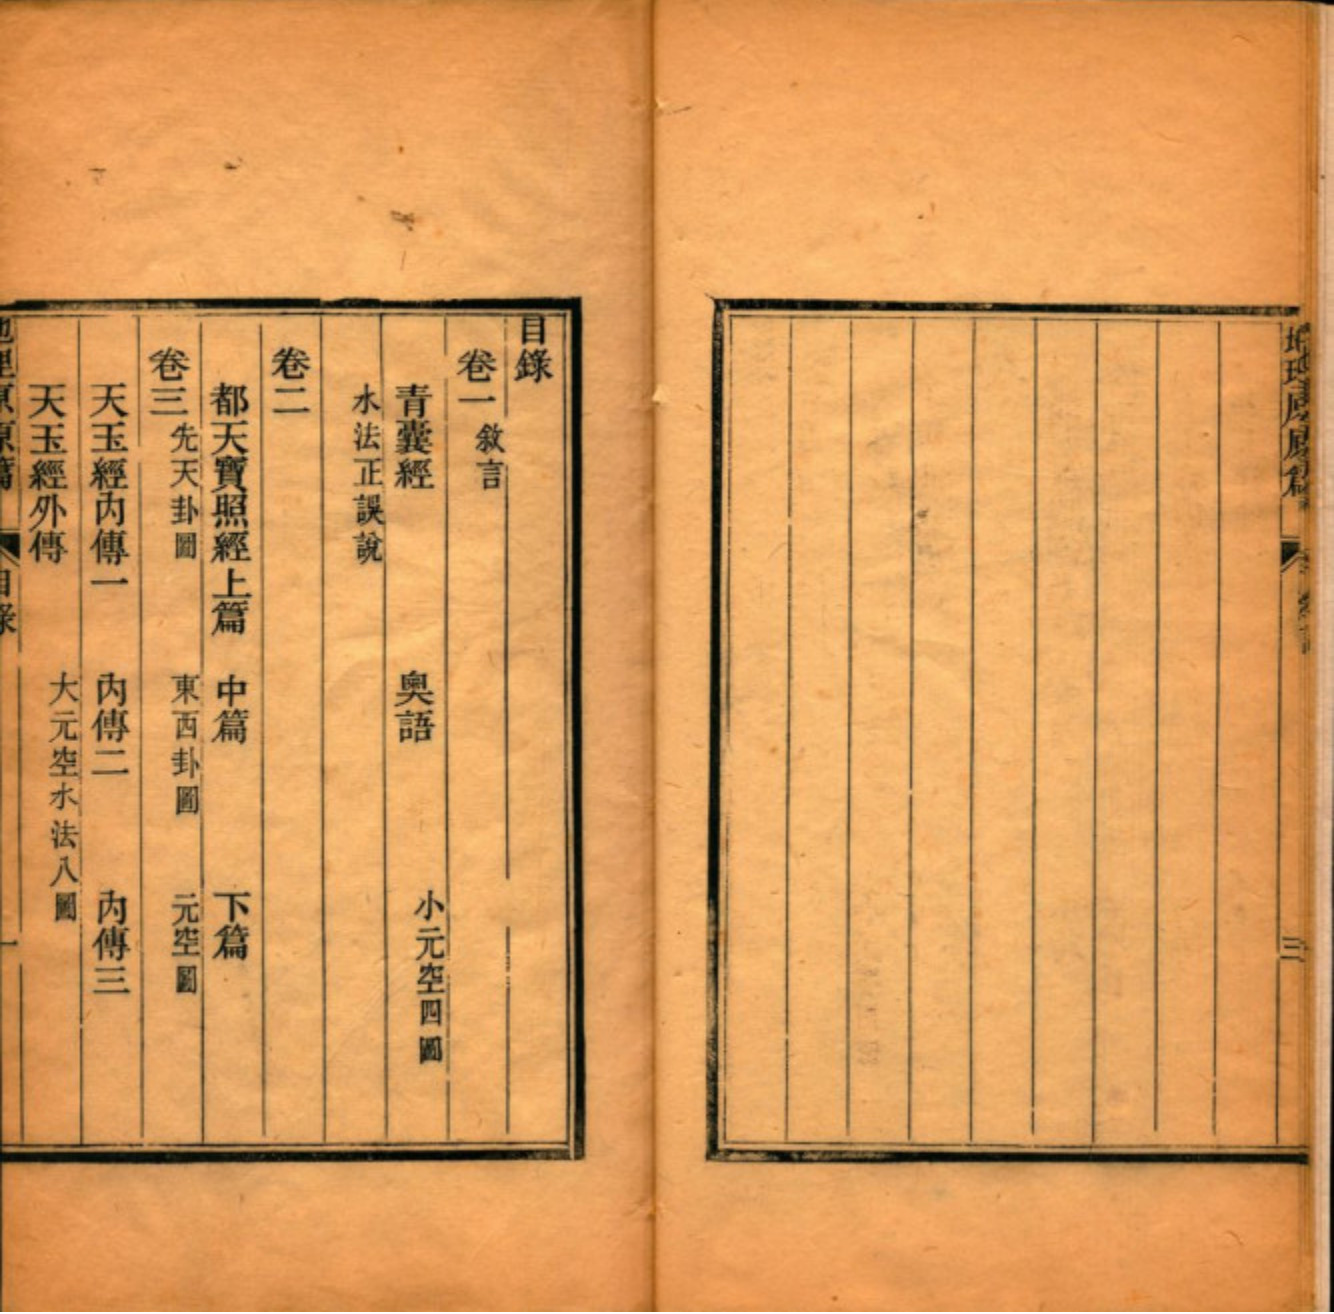 地理原原篇
三
目錄
卷一 敘言
青囊經 奧語 小元空四圖
水法正誤說
卷二
都天寶照經上篇 中篇 下篇
卷三 先天卦圖 東西卦圖 元空圖
天玉經內傳一 內傳二 內傳三
天玉經外傳 大元空水法八圖
地理原原篇 目錄 一